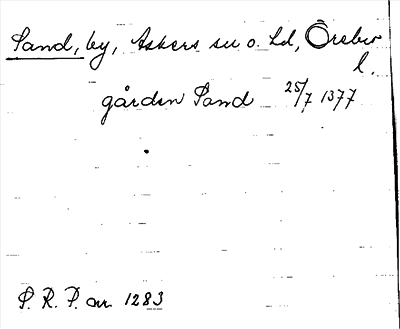 Sand, by, Askers sn o. hd, Örebro
l.
gården Sand 25/7 1377
S. R. P. nr 1283